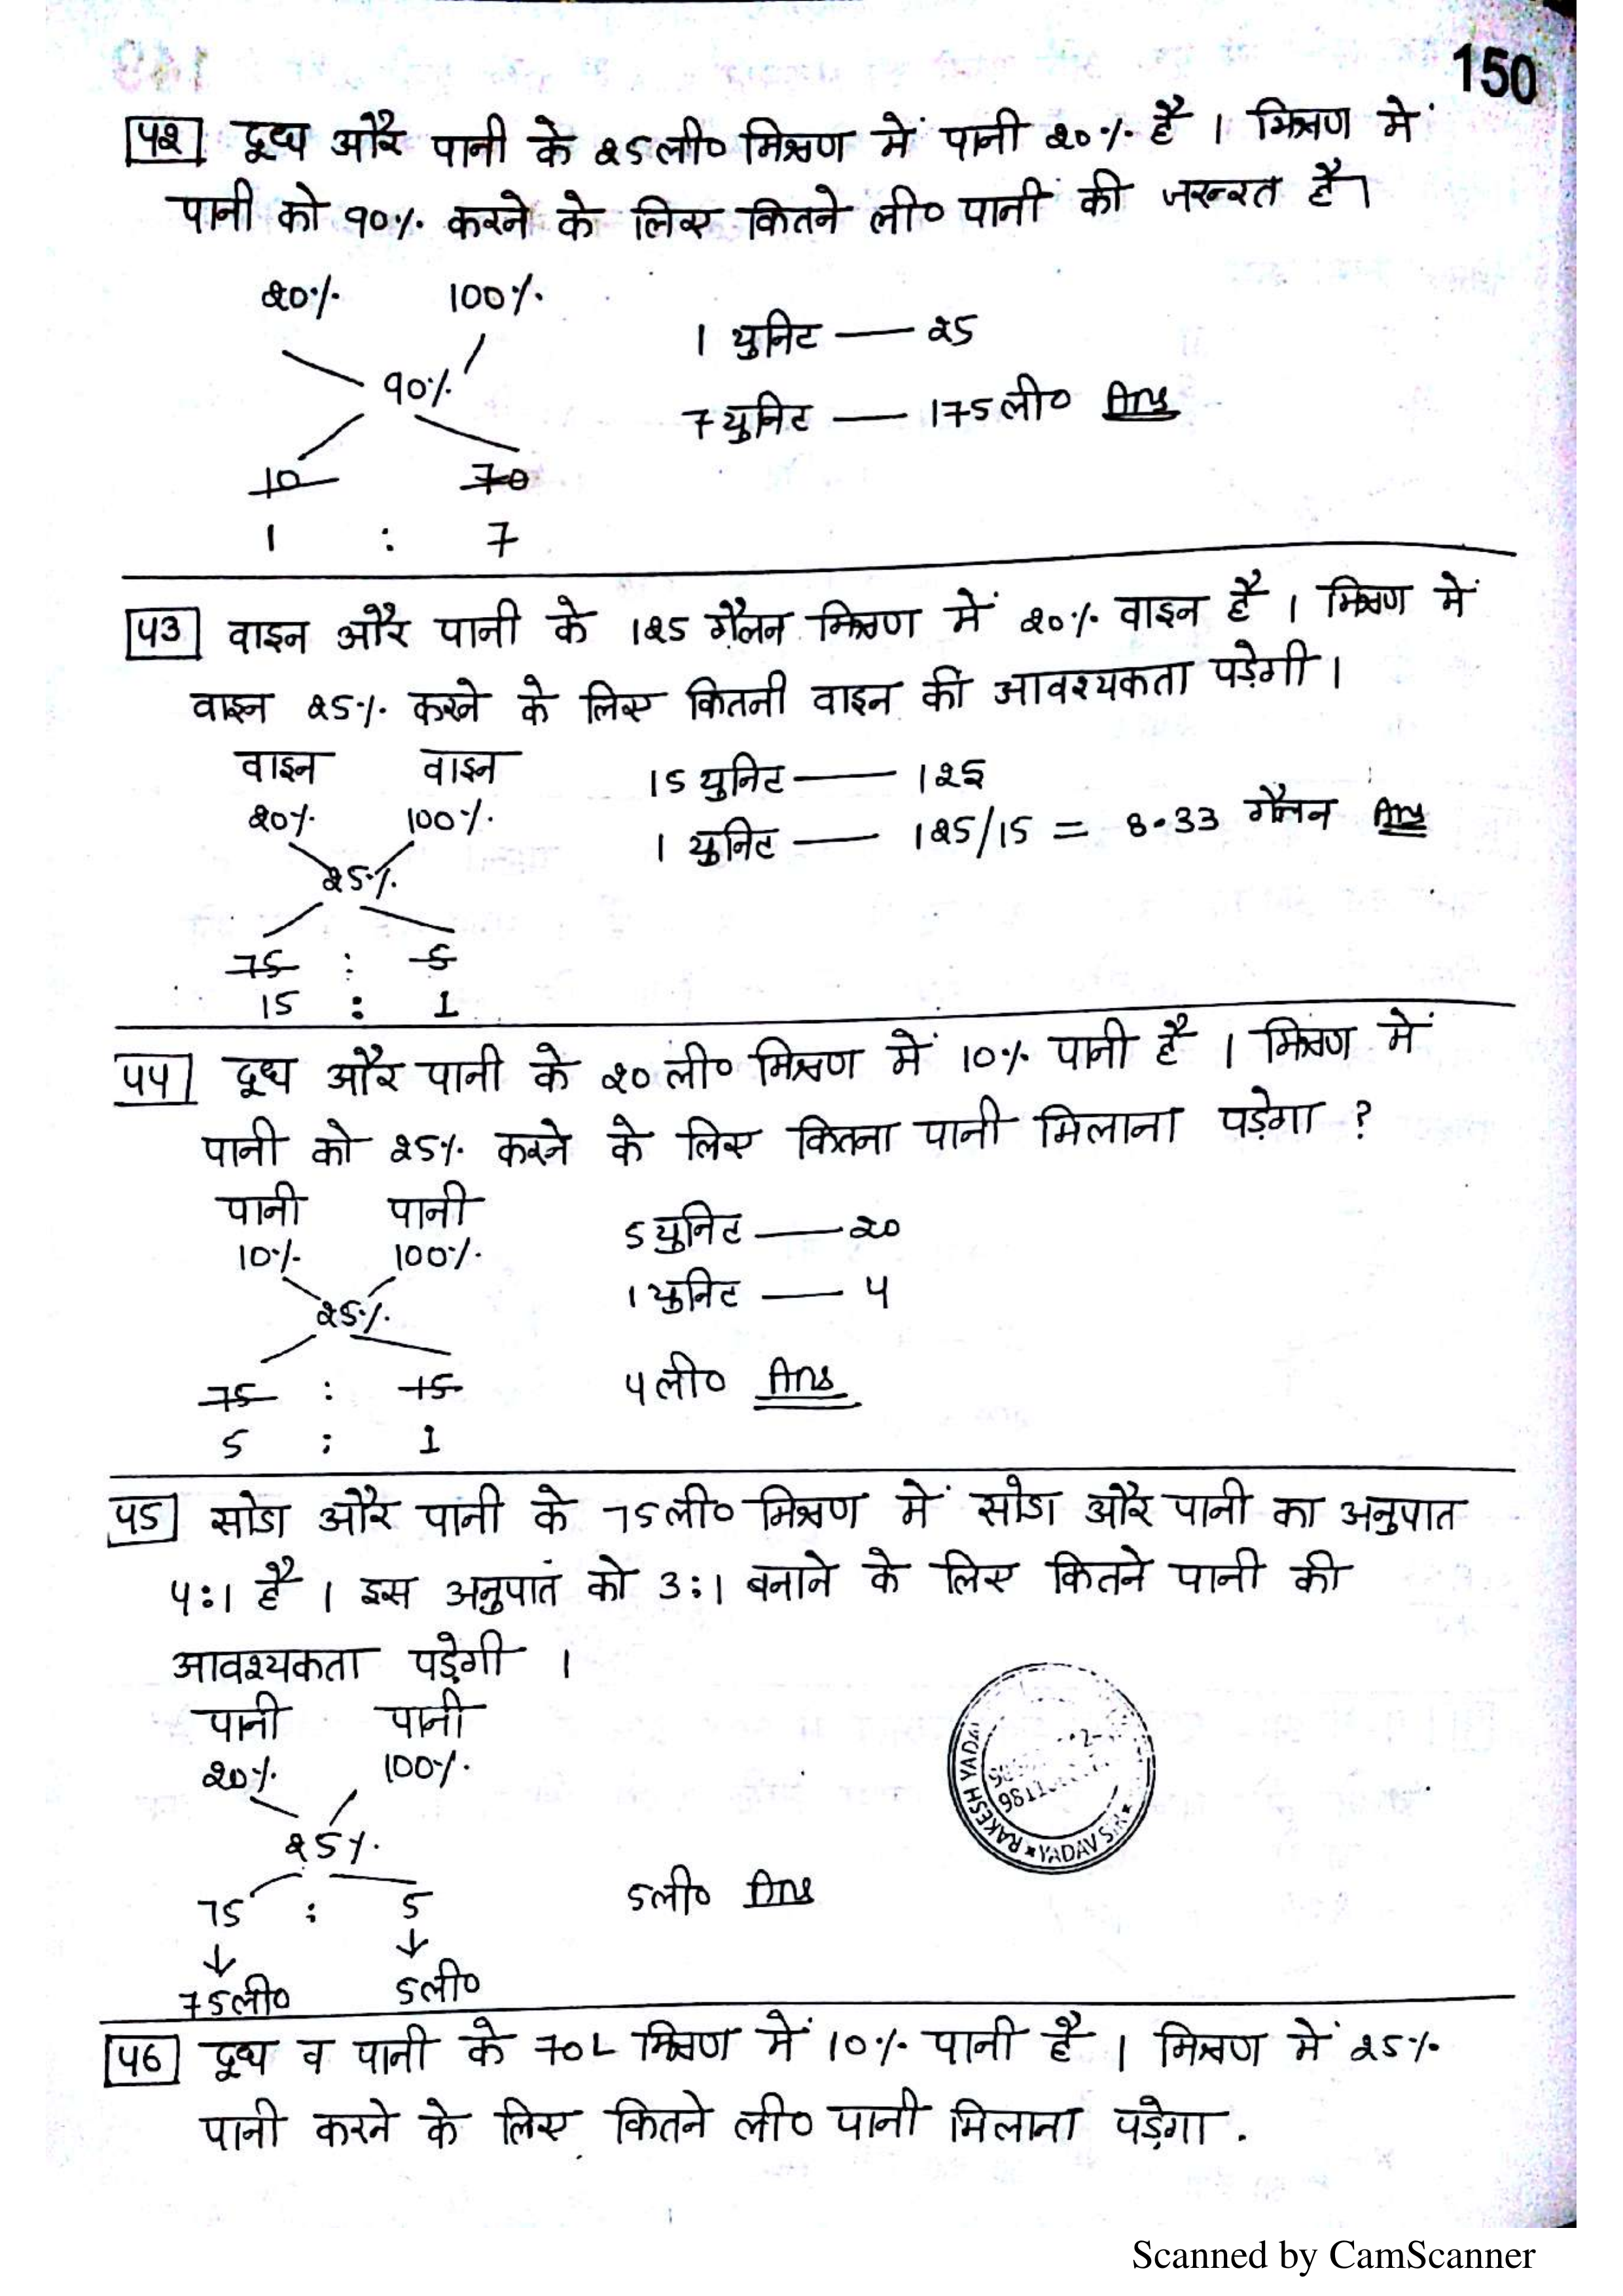 150
42 दूध और पानी के 25ली० मिश्रण में पानी 20% है । मिश्रण में
पानी को 90% करने के लिए कितने ली० पानी की जरूरत है।
20% 100%
90%
10 70
1 : 7
1 युनिट — 25
7 युनिट — 175ली० Ans
43 वाइन और पानी के 125 गैलन मिश्रण में 20% वाइन है । मिश्रण में
वाइन 25% करने के लिए कितनी वाइन की आवश्यकता पड़ेगी ।
वाइन वाइन
20% 100%
25%
75 : 5
15 : 1
15 युनिट — 125
1 युनिट — 125/15 = 8.33 गैलन Ans
44 दूध और पानी के 20 ली० मिश्रण में 10% पानी है । मिश्रण में
पानी को 25% करने के लिए कितना पानी मिलाना पड़ेगा ?
पानी पानी
10% 100%
25%
75 : 15
5 : 1
5 युनिट — 20
1 युनिट — 4
4ली० Ans
45 सोडा और पानी के 75ली० मिश्रण में सोडा और पानी का अनुपात
4:1 है । इस अनुपात को 3:1 बनाने के लिए कितने पानी की
आवश्यकता पड़ेगी ।
पानी पानी
20% 100%
25%
75 : 5
75ली० 5ली०
5ली० Ans
RAKESH YADAV YADAV SIR
46 दूध व पानी के 70L मिश्रण में 10% पानी है । मिश्रण में 25%
पानी करने के लिए कितने ली० पानी मिलाना पड़ेगा .
Scanned by CamScanner